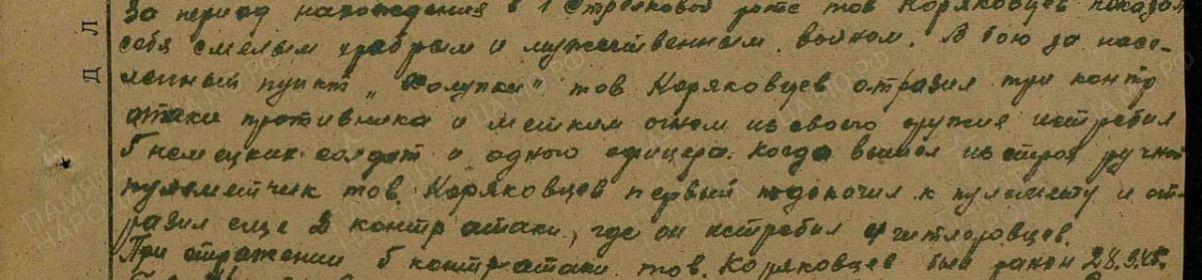 За период нахождения в 1 стрелковой роте тов Коряковцев показал
себя смелым храбрым и мужественным воином. В бою за насе-
ленный пункт „ " тов Коряковцев отразил три контр
атаки противника и метким огнем из своего оружия истребил
5 немецких солдат и одного офицера. Когда вышел из строя ручной
пулеметчик тов. Коряковцев первый подскочил к пулемету и от-
разил еще 2 контр атаки, где он истребил 4 гитлеровцев.
При отражении 5 контратаки тов. Коряковцев был ранен
Д Л